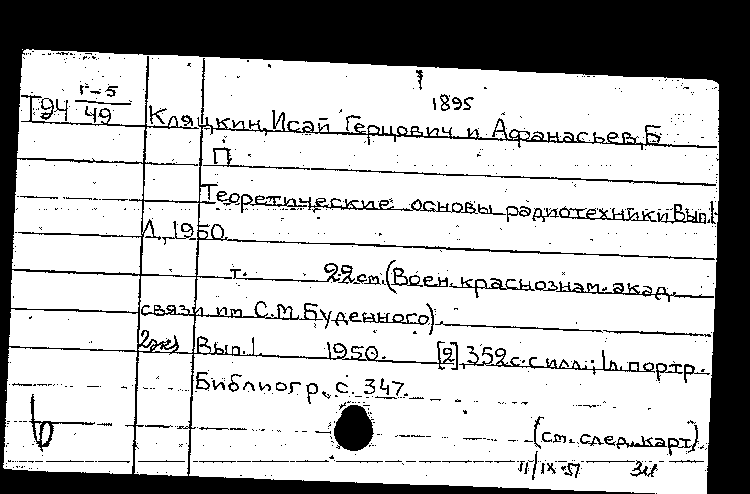 Г-5
1895
Т94 49 Кляцкин, Исай Герцович и Афанасьев, Б
П
Теоретические основы радиотехники Вып.1
Л., 1950
т. 22 см. (Воен. краснознам. акад.
связи им С.М. Буденного).
2экз Вып. 1. 1950. [2], 352 с. с илл.; 1 л. портр.
Библиогр., с. 347.
(см. след. карт)
11/IX-51